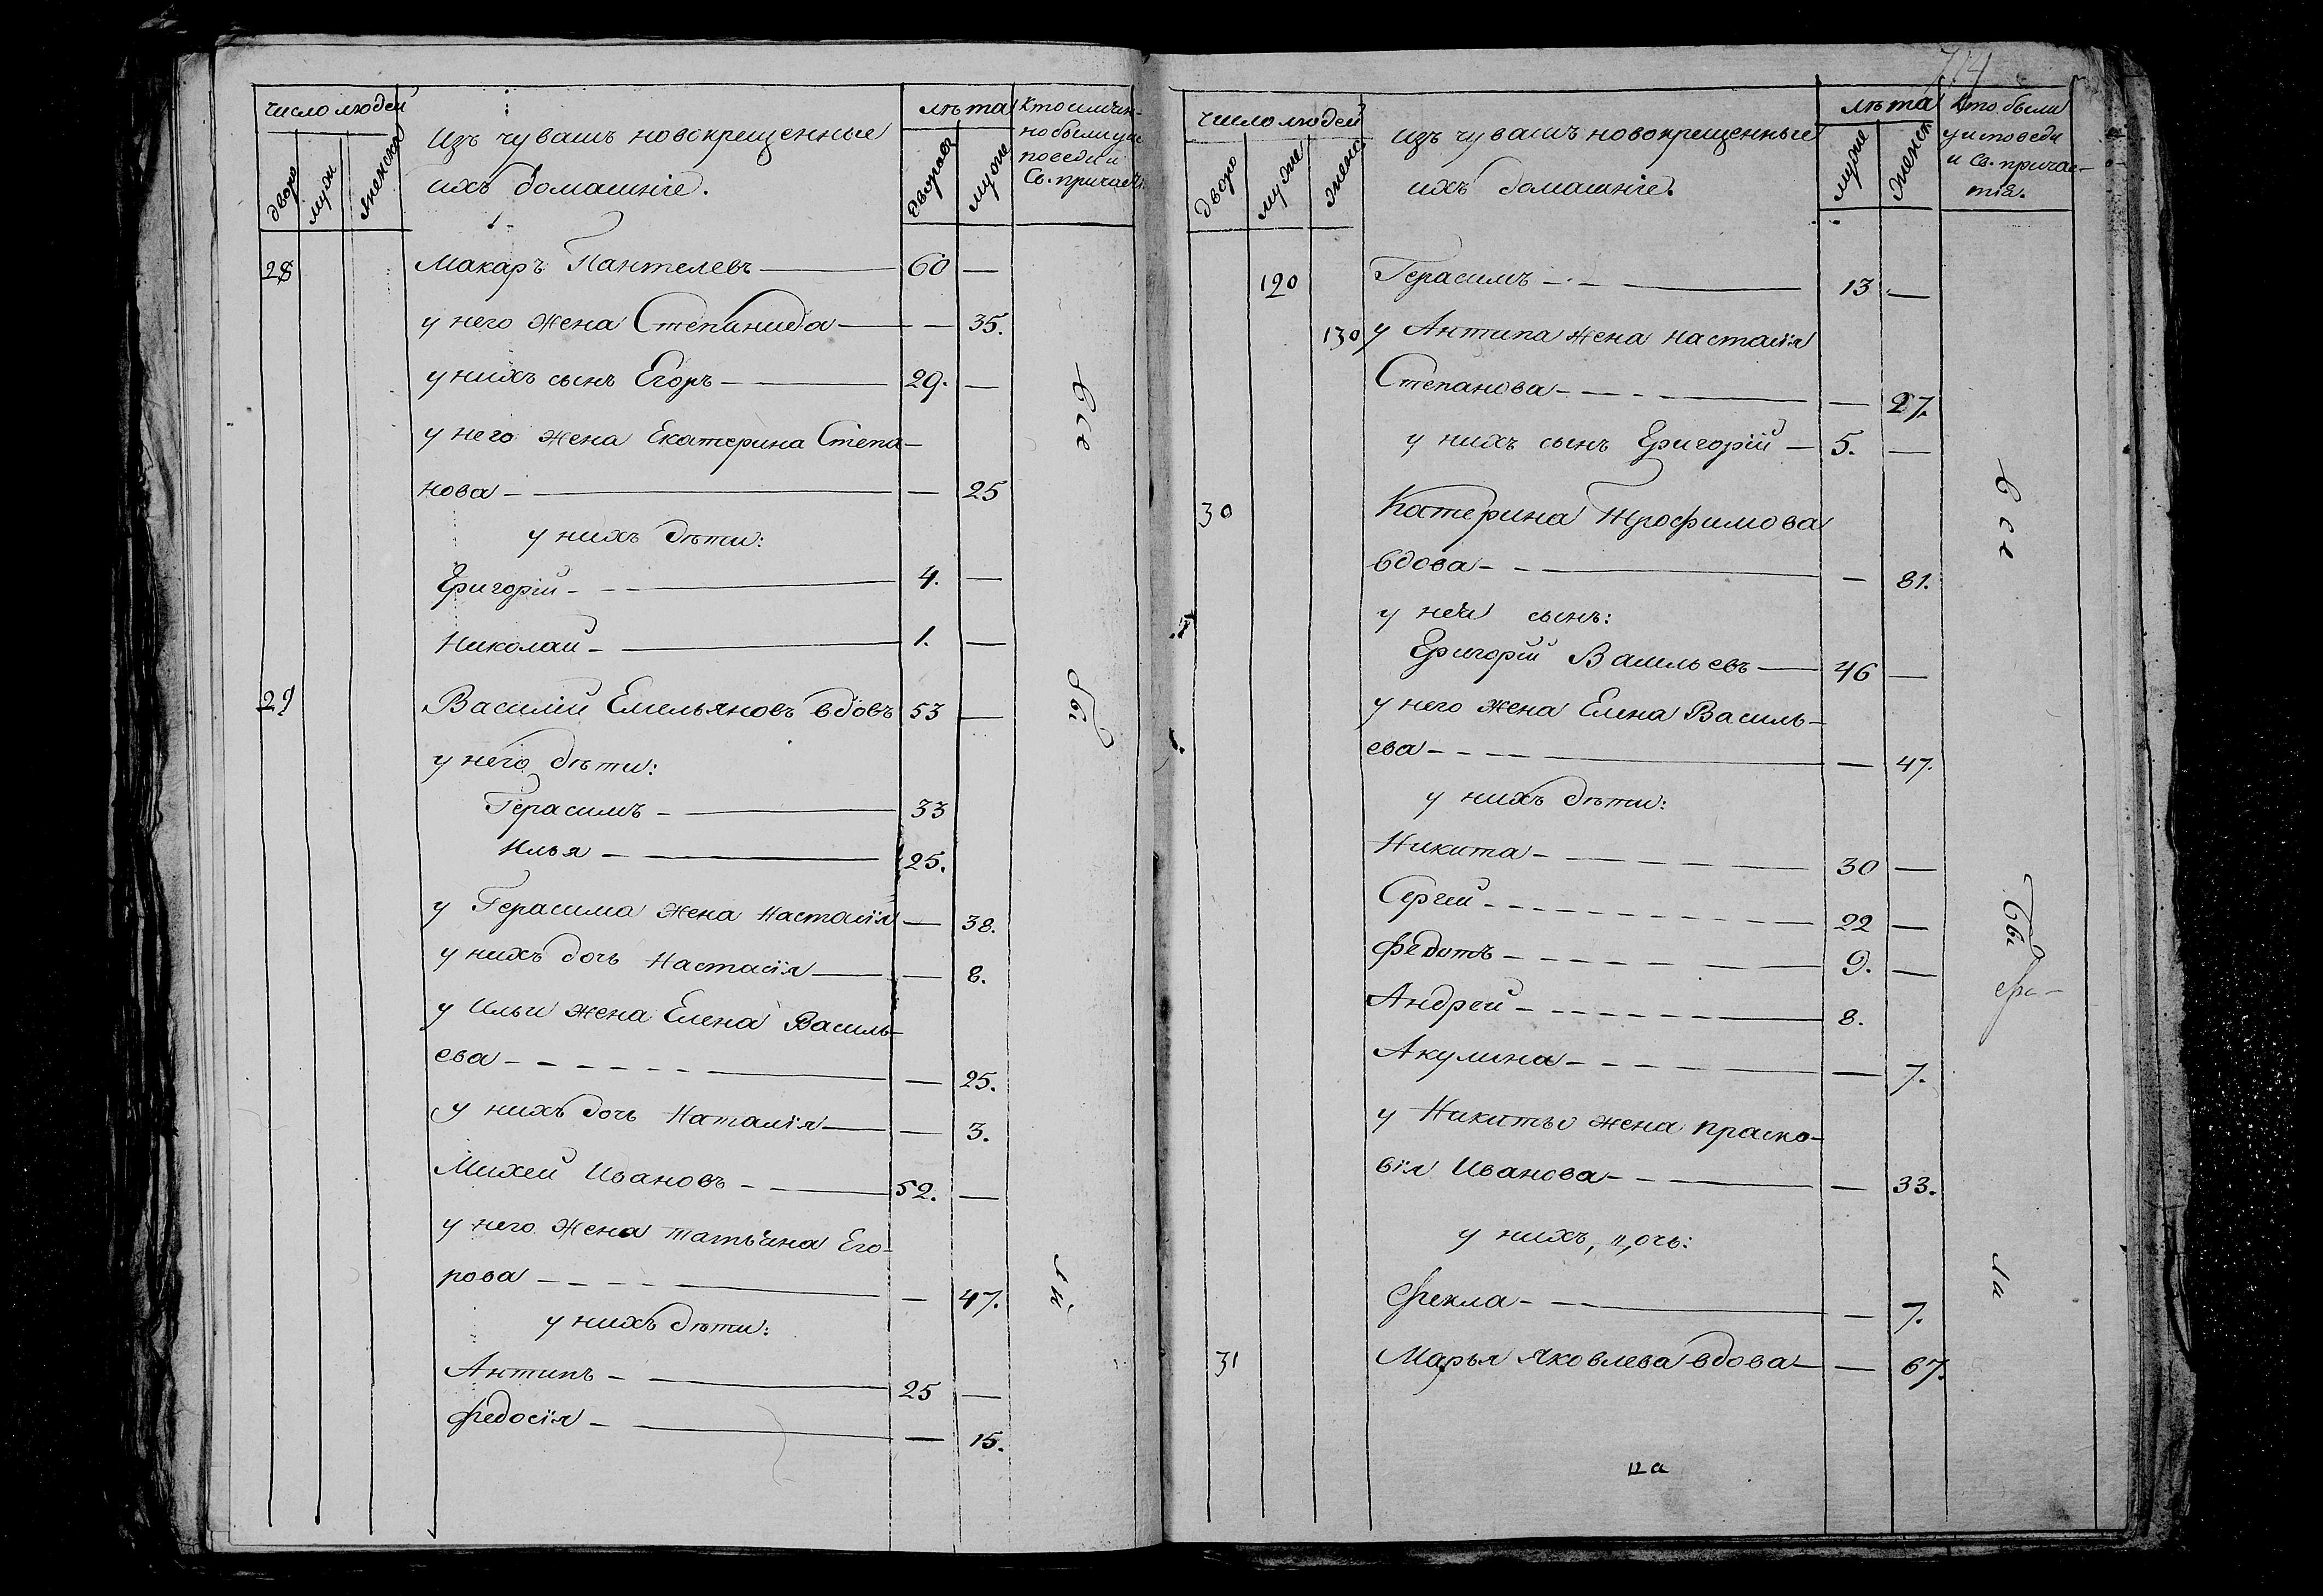 число людей
дворо
муж
женска
Изъ чувашъ новокрещенные
ихъ домашніе.
лѣта
дворовъ
муже
Кто именно
но были у ис
поведи и
Св. причасті
28 Макаръ Пантелевъ — 60 —
у него жена Степанида — — 35.
у нихъ сынъ Егоръ — 29. —
у него жена Екатерина Степа-
нова — — 25
у нихъ дѣти:
Григорій — 4. —
Николай — 1. —
29 Василій Емельяновъ вдовъ 53 —
у него дѣти:
Герасимъ — 33
Илья — 25.
у Герасима жена Настасія — 38.
у нихъ дочь Настасія — — 8.
у Ильи жена Елена Василь-
ева — — 25.
у нихъ дочь Наталія — — 3.
Михей Ивановъ — 52. —
у него жена Татьяна Его-
рова — — 47.
у нихъ дѣти:
Антипъ — 25 —
Федосія — — 15.
714
число людей
дворо
муже
женс.
изъ чувашъ новокрещенные
ихъ домашніе.
лѣта
муже
женск
Кто были
у исповеди
и Св. причас-
тія.
120 Герасимъ — 13 —
130 у Антипа жена Настасія
Степанова — — 27.
у нихъ сынъ Григорій — 5. —
30 Катерина Трофимова
вдова — — 81.
у ней сынъ:
Григорій Васильевъ — 46 —
у него жена Елена Василь-
ева — — 47.
у нихъ дѣти:
Никита — 30 —
Сергей — 22 —
Федотъ — 9. —
Андрей — 8.
Акулина — — 7.
у Никиты жена Праско-
вія Иванова — — 33.
у нихъ, дочь:
Фекла — — 7.
31 Марья Яковлева вдова — — 67.
Всѣ
бы
ли